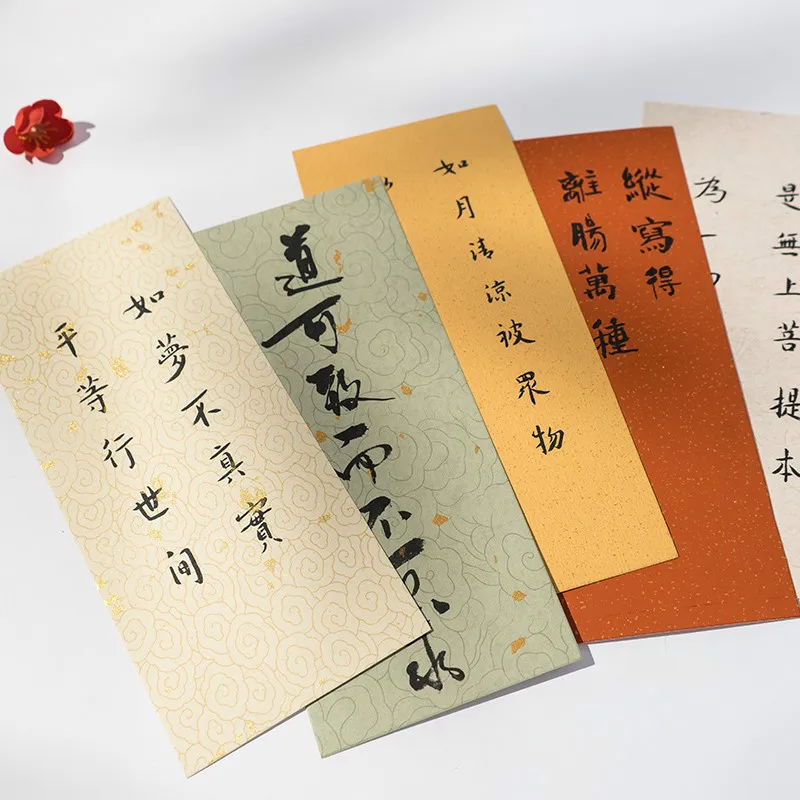 如夢不真實
平等行世间
道可致而不可求
如月清涼被眾物
縱寫得
離腸萬種
是無上菩提本
為一